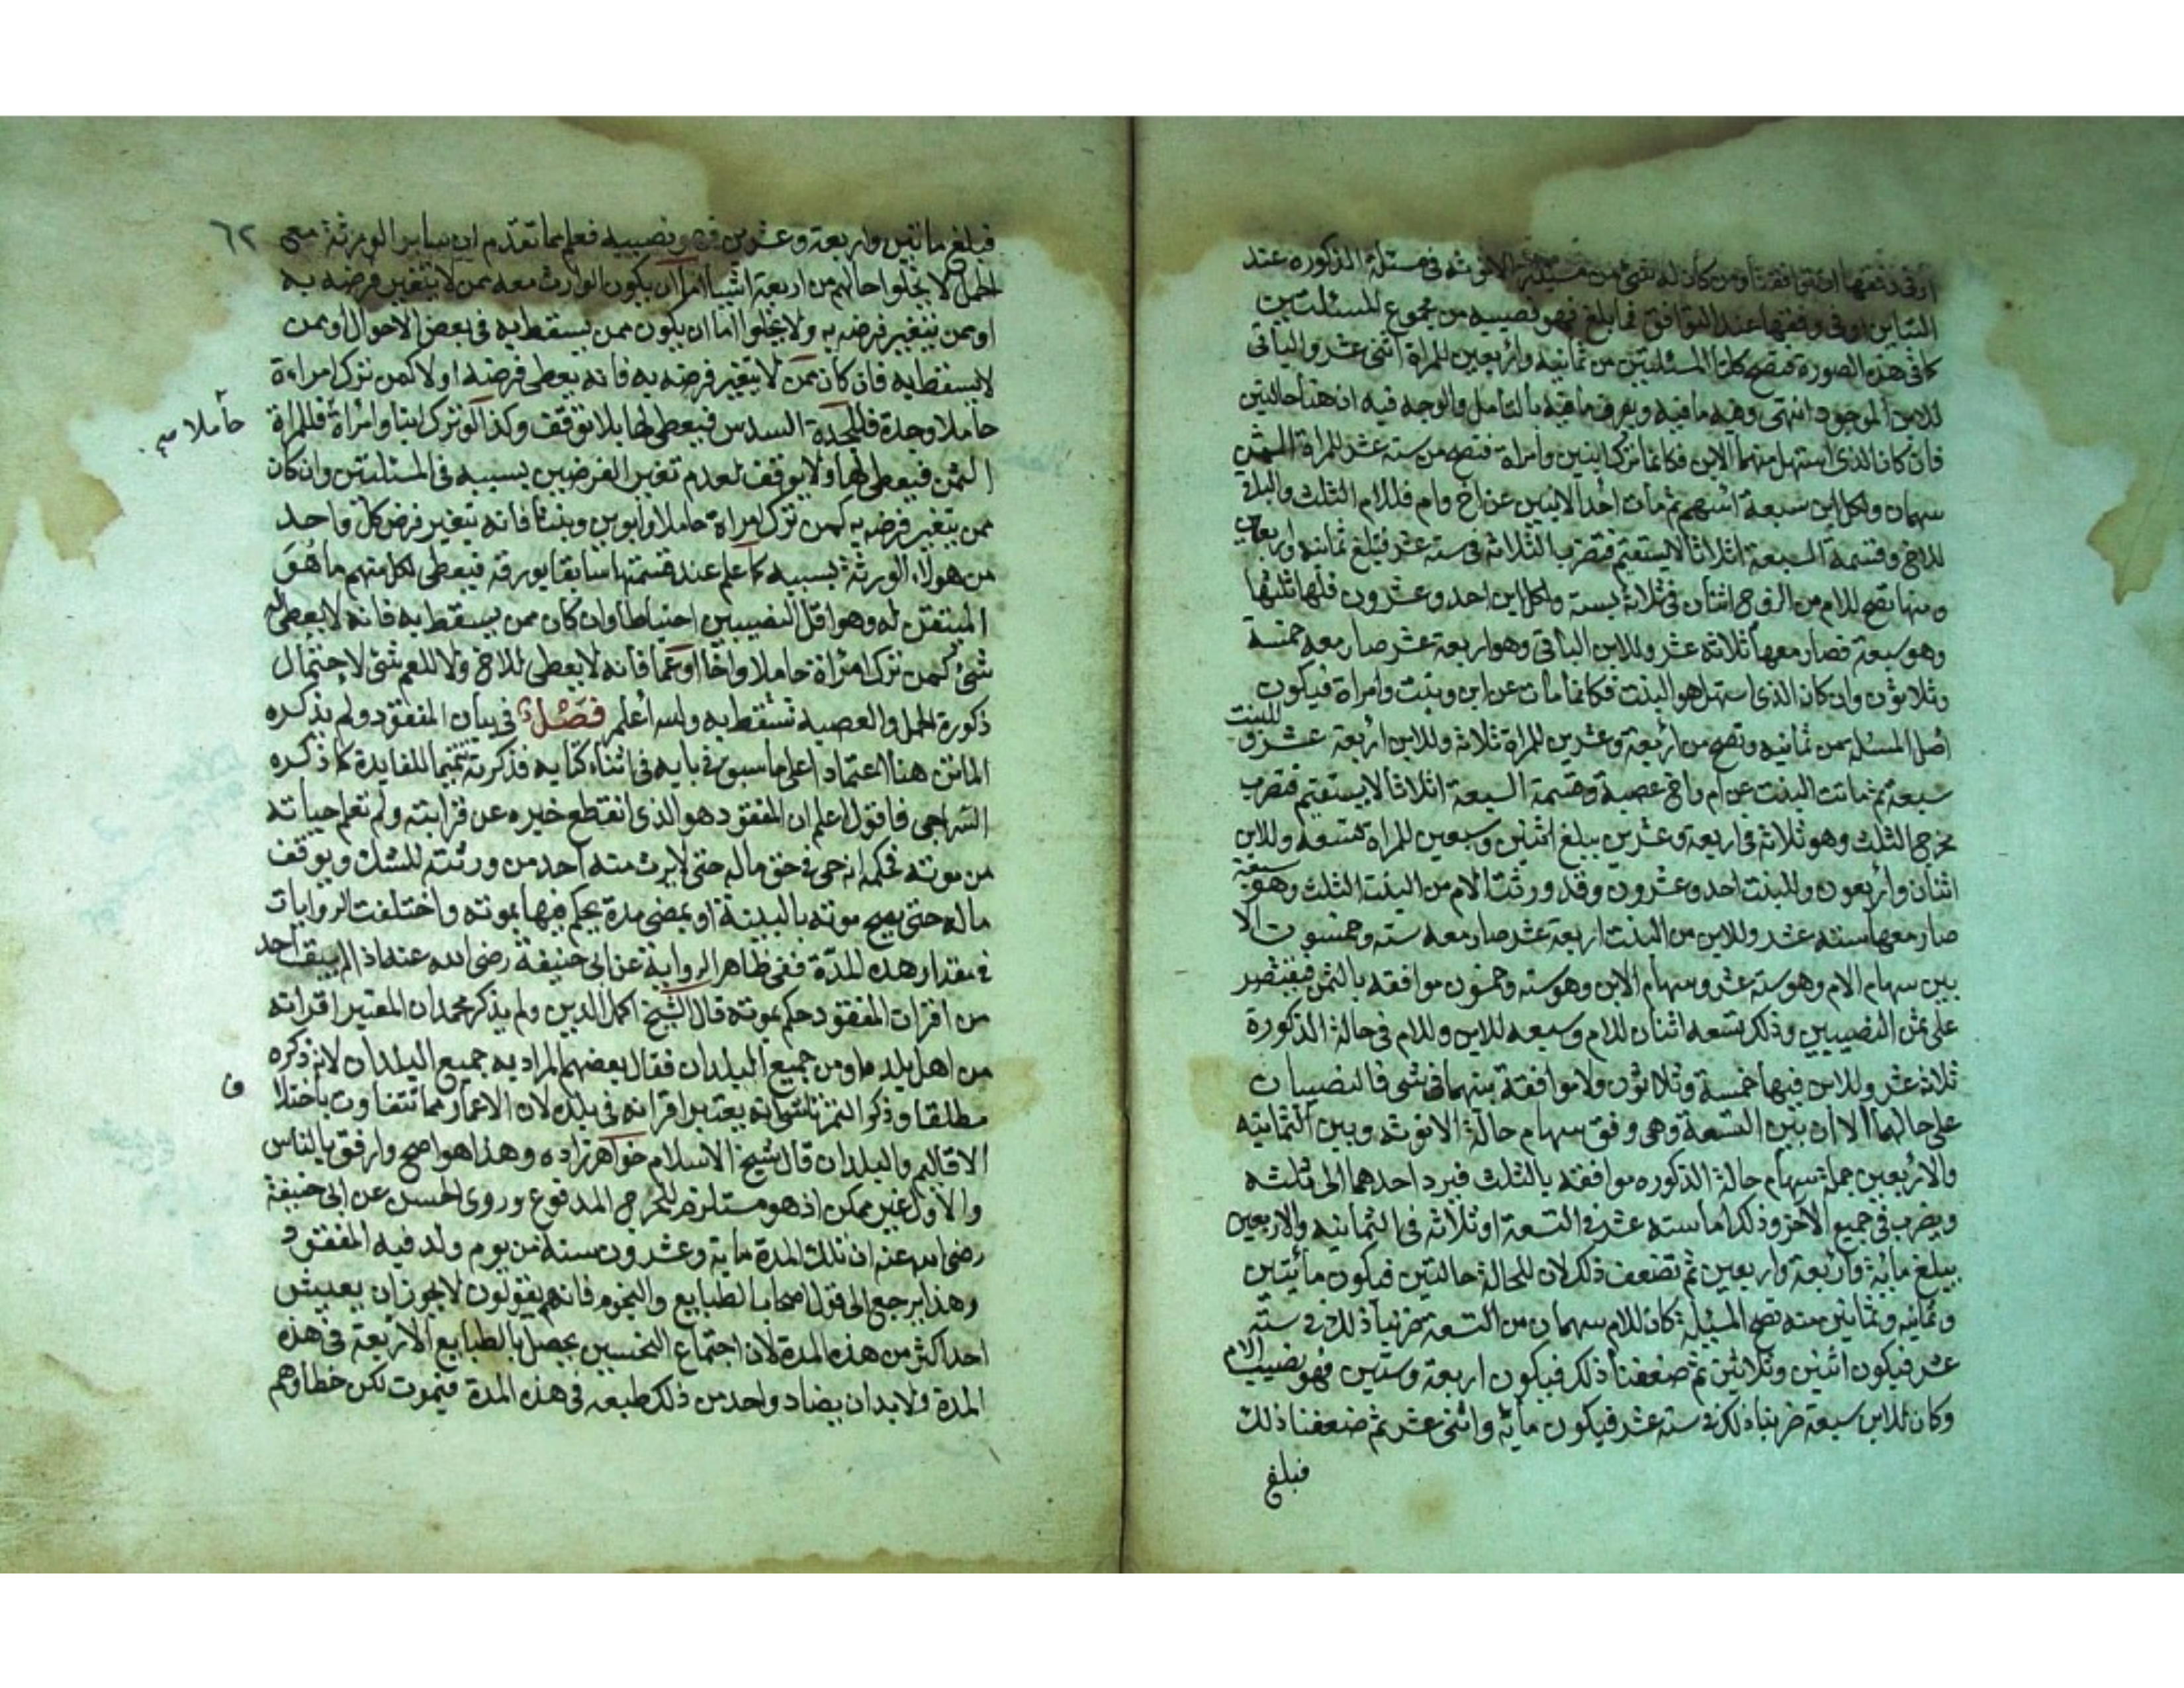 او فى وفقها ان توافقتا ومن كان له شئ من مسئلة الانوثه فى مسئلة الذكوره عند
التباين او فى وفقها عند التوافق فما بلغ فهو نصيبه من مجموع المسئلتين
كما فى هذه الصورة فتصح كلتا المسئلتين من ثمانيه واربعين للمراة اثنى عشر والباقى
للابن الموجود انتهى وفيه ما فيه ويعرف ما فيه بالتامل والوجه فيه ان هنا حالتين
فان كان الذى استهل منهما الابن فكانما ترك ابنين وامراة فتصح من سته عشر للمراة الثمن
سهمان ولكل ابن سبعة اسهم ثم مات احد الابنين عن اخ وام فللام الثلث والباقى
للاخ وقسمة السبعة اثلاثا لا يستقيم فتضرب الثلاثه فى سته عشر فتبلغ ثمانيه واربعين
ومنها تصح للام من الزوج اثنان فى ثلاثة بسته ولكل ابن احد وعشرون فلها ثلثها
وهو سبعة فصار معها ثلاثه عشر وللابن الباقى وهو اربعة عشر صار معه خمسة
وثلاثون وان كان الذى استهل هو البنت فكانما مات عن ابن وبنت وامراة فيكون
اصل المسئله من ثمانيه وتصح من اربعة وعشرين للمراة ثلاثه وللابن اربعة عشر و للبنت
سبعة ثم ماتت البنت عن ام واخ عصبة وقسمة السبعة اثلاثا لا يستقيم فتضرب
مخرج الثلث وهو ثلاثه فى اربعة وعشرين يبلغ اثنين وسبعين للمراة تسعه وللابن
اثنان واربعون وللبنت احد وعشرون وقد ورثت الام من البنت الثلث وهو سبعة
صار معها سته عشر وللابن من البنت اربعة عشر صار معه سته وخمسون الا
بين سهام الام وهو سته عشر وسهام الابن وهو سته وخمسون موافقه بالثمن فيقتصر
على ثمن النصيبين وذلك تسعه اثنان للام وسبعه للابن وللام فى حالة الذكورة
ثلاثه عشر وللابن فيها خمسة وثلاثون ولا موافقة بينهما فى شئ فالنصيبان
على حالهما الا ان بين التسعة وهى وفق سهام حالة الانوثه وبين الثمانيه
والاربعين جملة سهام حالة الذكوره موافقه بالثلث فيرد احدهما الى ثلثه
ويضرب فى جميع الاخر وذلك اما سته عشر فى التسعة او ثلاثه فى الثمانيه والاربعين
يبلغ مائة واربعة واربعين ثم تضعف ذلك لان للحالة حالتين فيكون مأئتين
وثمانيه وثمانين منه تصح المسئلة كان للام سهمان من التسعه ضربنا ذلك فى سته
عشر فيكون اثنين وثلاثين ثم ضعفنا ذلك فيكون اربعة وستين فهو نصيب الام
وكان للابن سبعة ضربنا ذلك فى سته عشر فيكون مأية واثنى عشر ثم ضعفنا ذلك
فبلغ
٦٢
فبلغ مائتين واربعة وعشرين فهو نصيبه فعلم مما تقدم ان سائر الورثة مع
الحمل لا يخلوا حالهم من اربعة اشيا اما ان يكون الوارث معه ممن لا يتغير فرضه به
او ممن يتغير فرضه به ولا يخلوا اما ان يكون ممن يسقط به فى بعض الاحوال او ممن
لا يسقط به فان كان ممن لا يتغير فرضه به فانه يعطى فرضه اولا كمن ترك امراءة
حاملا وجدة فللجدة السدس فيعطى لها بلا توقف وكذا لو ترك ابنا وامراة فللمراة
حاملا صح
الثمن فيعطى لها ولا يوقف لعدم تغير الفرضين بسببه فى المسئلتين وان كان
ممن يتغير فرضه به كمن ترك امراة حاملا وابوين وبنتا فانه يتغير فرض كل واحد
من هولاء الورثة بسببه كما علم عند قسمتها سابقا بورقه فيعطى لكل منهم ما هو
المتيقن له وهو اقل النصيبين احتياطا وان كان ممن يسقط به فانه لا يعطى له
شئ كمن ترك امراة حاملا واخا او عما فانه لا يعطى للاخ ولا للعم شئ لاحتمال
ذكورة الحمل والعصبه تسقط به والله اعلم فصل فى بيان المفقود ولم يذكره
الماتن هنا اعتمادا على ما سبق فى بابه فى اثناء كتابه فذكرته تتميما للفايدة كما ذكره
السراجى فاقول اعلم ان المفقود هو الذى انقطع خبره عن قرابته ولم تعلم حياته
من موته فحكمه انه حى فى حق ماله حتى لا يرث منه احد من ورثته للشك ويوقف
ماله حتى يصح موته بالبينة او بمضى مدة يحكم فيها بموته واختلفت الروايات
فى مقدار هذه المدة ففى ظاهر الرواية عن ابى حنيفة رضى الله عنه اذا لم يبق احد
من اقران المفقود حكم بموته قال الشيخ اكمل الدين ولم يذكر محمد ان المعتبر اقرانه
من اهل بلده او من جميع البلدان فقال بعضهم المراد به جميع البلدان لانه ذكره
مطلقا وذكر التمرتاشى انه يعتبر اقرانه فى بلده لان الاعمار مما تتفاوت باختلا
ف
الاقاليم والبلدان قال شيخ الاسلام خواهر زاده وهذا هو اصح وارفق بالناس
والاول غير ممكن اذ هو مستلزم للحرج المدفوع وروى الحسن عن ابى حنيفة
رضى الله عنه ان تلك المدة ماية وعشرون سنة من يوم ولد فيه المفقود
وهذا يرجع الى قول اصحاب الطبايع والنجوم فانهم يقولون لا يجوز ان يعيش
احد اكثر من هذه المدة لان اجتماع النحسين يحصل بالطبايع الاربعة فى هذه
المدة ولا بد ان يضاد واحد من ذلك طبعه فى هذه المدة فيموت لكن خطاوهم